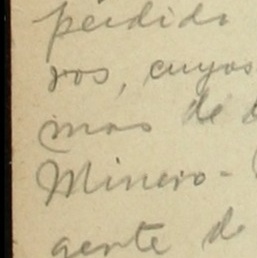 perdido
ros, cuyos
mas de
Minero-
gente de